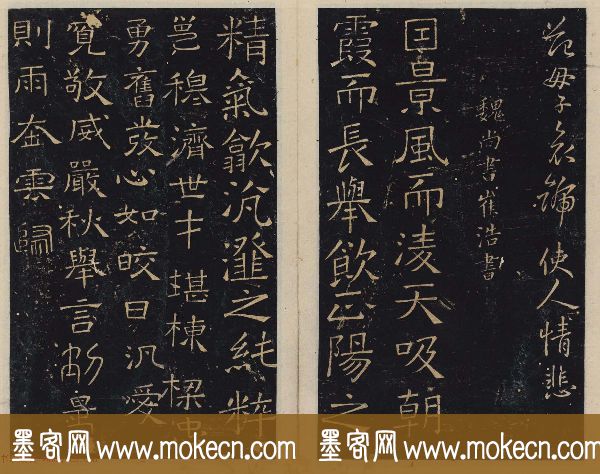 母子哀 使人情悲
魏尚書崔浩書
景風而淩天吸朝
霞而長舉飲正陽之
精氣歙沆瀣之純粹
邕穆濟世才堪棟樑
勇奮發心如皎日汎愛
寬敬威嚴秋舉言
則雨 雲歸
墨客网 www.mokecn.com 墨客网 www.mokecn.com